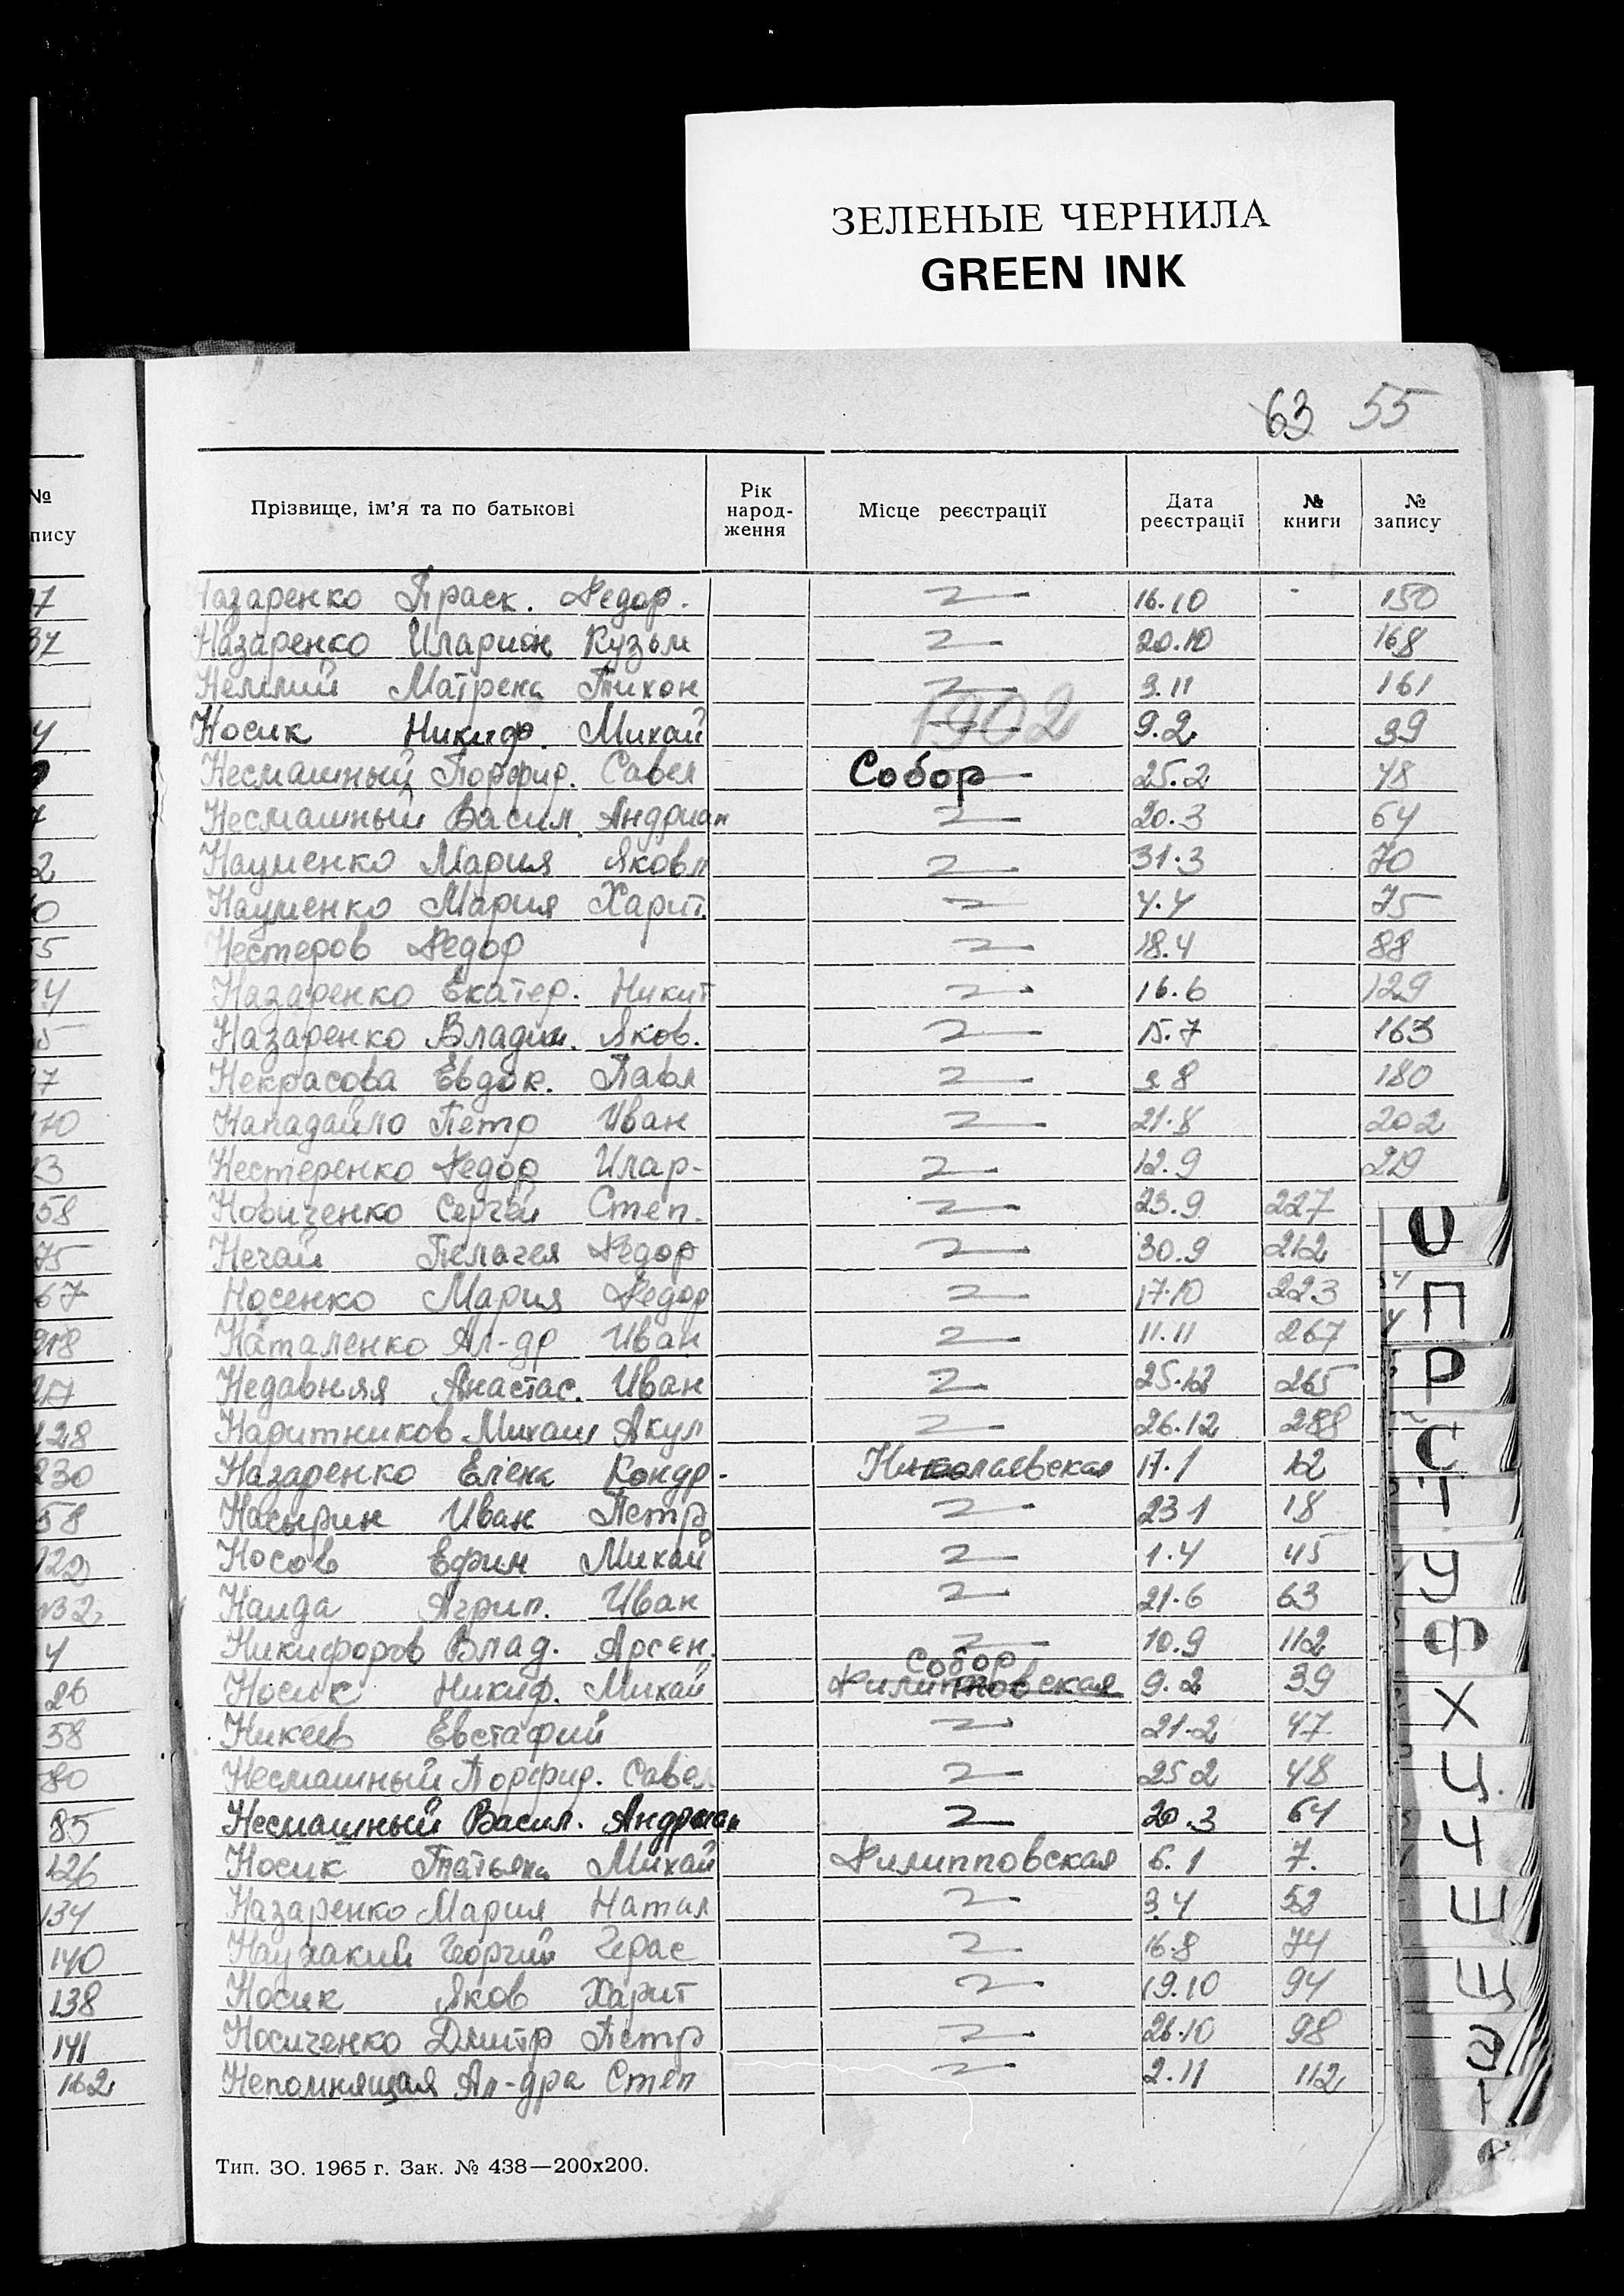 ЗЕЛЕНЫЕ ЧЕРНИЛА
GREEN INK
63 55
№ запису
Прізвище, ім'я та по батькові Рік народження Місце реєстрації Дата реєстрації № книги № запису
Назаренко Праск. Федор. 〃 16.10 150
Назаренко Иларион Кузьм 〃 20.10 168
Матрена Тихон 〃 3.11 161
1902
Носик Никиф. Михай 〃 9.2 39
Несмашный Порфир. Савел Собор 25.2 48
Несмашный Васил. Андриан 〃 20.3 64
Науменко Мария Яковл 〃 31.3 70
Науменко Мария Харит. 〃 4.4 75
Нестеров Федор 〃 18.4 88
Назаренко Екатер. Никит 〃 16.6 129
Назаренко Владим. Яков. 〃 15.7 163
Некрасова Евдок. Павл 〃 8 180
Нападайло Петр Иван 〃 21.8 202
Нестеренко Федор Илар- 〃 12.9 219
Новиченко Сергей Степ. 〃 23.9 227
Нечай Пелагея Федор 〃 30.9 212
Носенко Мария Федор 〃 17.10 223
Наталенко Ал-др Иван 〃 11.11 267
Недавняя Анастас. Иван 〃 25.12 265
Наритников Михаил Акул 〃 26.12 288
Назаренко Елена Кондр. Николаевская 17.1 12
Насырин Иван Петр 〃 23 1 18
Носов Ефим Михай 〃 1.4 45
Наида Агрип. Иван 〃 21.6 63
Никифоров Влад. Арсен. 〃 10.9 112
Собор
Носик Никиф. Михай Филипповская 9.2 39
Никеев Евстафий 〃 21.2 47
Несмашный Порфир. Савел 〃 25 2 48
Несмашный Васил. Андриан 〃 20.3 64
Носик Татьяна Михай Филипповская 6.1 7.
Назаренко Мария Натал 〃 3.4 52
Георгий Герас 〃 16.8 74
Носик Яков Харит 〃 19.10 94
Носиченко Дмитр Петр 〃 26.10 98
Непомнящая Ал-дра Степ 〃 2.11 112
Тип. ЗО. 1965 г. Зак. № 438—200х200.
О
П
Р
С
Т
У
Ф
Х
Ц
Ч
Ш
Щ
230
58
122
132
4
26
58
80
85
126
134
140
138
141
162